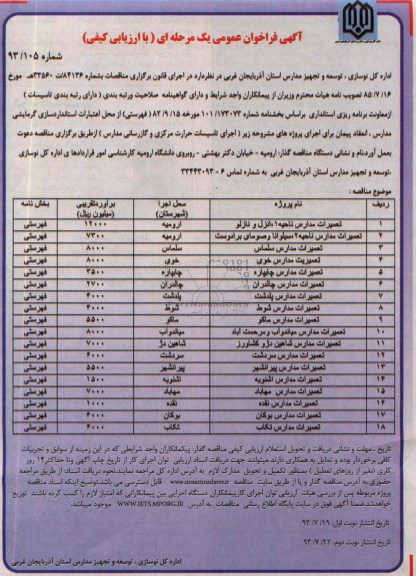 آگهی فراخوان عمومی یک مرحله ای ( با ارزیابی کیفی)
شماره ۹۳/۱۰۵
اداره کل نوسازی ، توسعه و تجهیز مدارس استان آذربایجان غربی در نظردارد در اجرای قانون برگزاری مناقصات بشماره ۸۴۱۳۶/ت ۳۳۵۶۰هـ مورخ
۸۵/۷/۱۶ تصویب نامه هیات محترم وزیران از پیمانکاران واجد شرایط و دارای گواهینامه صلاحیت ورتبه بندی ( دارای رتبه بندی تاسیسات )
ازمعاونت برنامه ریزی استانداری براساس بخشنامه شماره ۱۰۱/۱۷۳۰۷۳ مورخه ۸۲/۹/۱۵ ( فهرستی) از محل اعتبارات استانداردسازی گرمایشی
مدارس ، انعقاد پیمان برای اجرای پروژه های مشروحه زیر ( اجرای تاسیسات حرارت مرکزی و گازرسانی مدارس ) ازطریق برگزاری مناقصه دعوت
بعمل آورد.نام و نشانی دستگاه مناقصه گذار: ارومیه - خیابان دکتر بهشتی - روبروی دانشگاه ارومیه کارشناسی امور قراردادها ی اداره کل نوسازی
،توسعه و تجهیز مدارس استان آذربایجان غربی به شماره تماس ۶ - ۳۳۴۴۳۰۹۳
موضوع مناقصه :
ردیف نام پروژه محل اجرا (شهرستان) برآوردتقریبی (میلیون ریال) بخش نامه
۱ تعمیرات مدارس ناحیه۱،انزل و نازلو ارومیه ۱۲۰۰۰ فهرستی
۲ تعمیرات مدارس ناحیه۲،سیلوانا وصومای برادوست ارومیه ۷۳۰۰ فهرستی
۳ تعمیرات مدارس سلماس سلماس ۸۰۰۰ فهرستی
۴ تعمیریت مدارس خوی خوی ۸۰۰۰ فهرستی
۵ تعمیرات مدارس چایپاره چایپاره ۳۵۰۰ فهرستی
۶ تعمیرات مدارس چالدران چالدران ۲۷۰۰ فهرستی
۷ تعمیرات مدارس پلدشت پلدشت ۴۰۰۰ فهرستی
۸ تعمیرات مدارس شوط شوط ۴۰۰۰ فهرستی
۹ تعمیرات مدارس ماکو ماکو ۵۵۰۰ فهرستی
۱۰ تعمیرات مدارس میاندواب ومرحمت آباد میاندواب ۸۰۰۰ فهرستی
۱۱ تعمیرات مدارس شاهین دژ و کشاورز شاهین دژ ۷۰۰۰ فهرستی
۱۲ تعمیرات مدارس سردشت سردشت ۶۰۰۰ فهرستی
۱۳ تعمیرات مدارس پیرانشهر پیرانشهر ۵۵۰۰ فهرستی
۱۴ تعمیرات مدارس اشنویه اشنویه ۱۵۰۰ فهرستی
۱۵ تعمیرات مدارس مهاباد مهاباد ۷۰۰۰ فهرستی
۱۶ تعمیرات مدارس نقده نقده ۱۰۰۰ فهرستی
۱۷ تعمیرات مدارس بوکان بوکان ۶۰۰۰ فهرستی
۱۸ تعمیرات مدارس تکاب تکاب ۶۰۰۰ فهرستی
تاریخ ، مهلت و نشانی دریافت و تحویل استعلام ارزیابی کیفی مناقصه گذار: پیکمانکاران واجد شرایطی که در این زمینه از سوابق و تجربیات
کافی برخوردار بوده و تمایل به همکاری دارند میتوانند جهت دریافت اسناد ارزیابی توان اجرای کار از تاریخ چاپ آگهی وتا حداکثر۱۴ روز
کاری (بغیر از روزهای تعطیل ) بمنظور تکمیل و تحویل مدارک لازم به آدرس اداره کل مراجعه نمایند.نحوه دریافت اسناد: از طریق مراجعه
حضوری به آدرس مناقصه گذار و یا از طریق سایت مناقصه قابل دسترسی می باشد.توضیح اینکه اسناد مناقصه
پروژه مربوطه پس از بررسی هیات ارزیابی توان اجرای کارپیمانکاران دستگاه اجرایی بین پیمانکارانی که امتیاز لازم را کسب کرده باشند توزیع
خواهدشد.ضمنا آگهی فوق در سایت پایگاه اطلاع رسانی مناقصات به آدرس WWW.IETS.MPORG.IR موجود میباشد.
تاریخ انتشار نوبت اول: ۹۳/۷/۱۹
تاریخ انتشار نوبت دوم: ۹۳/۷/۲۲
اداره کل نوسازی ، توسعه و تجهیز مدارس استان آذربایجان غربی